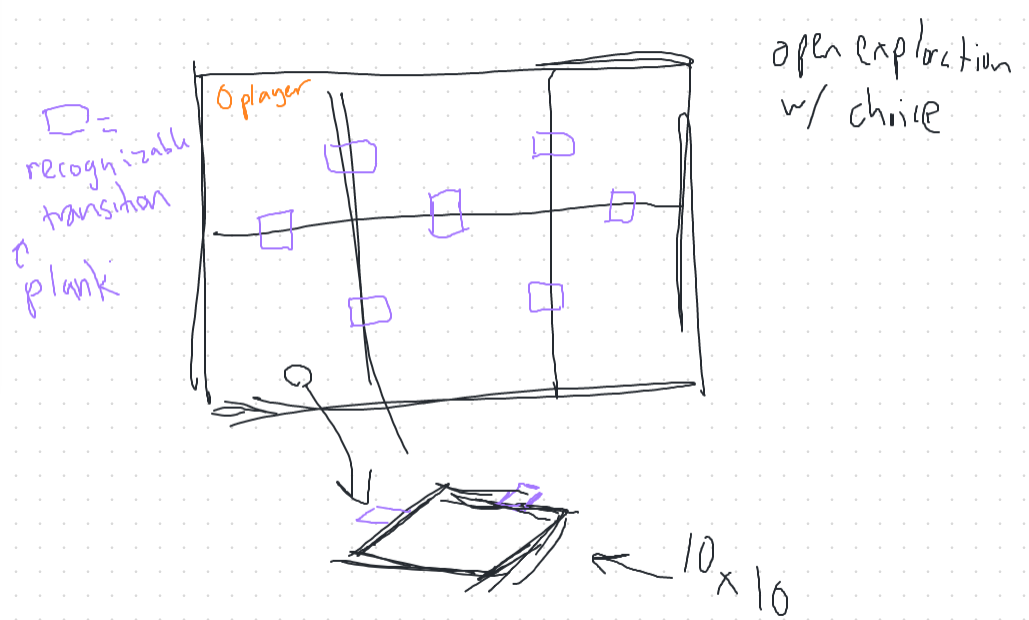 open exploration
w/ choice
player
▭ =
recognizable
transition
↑
plank
10 x 10